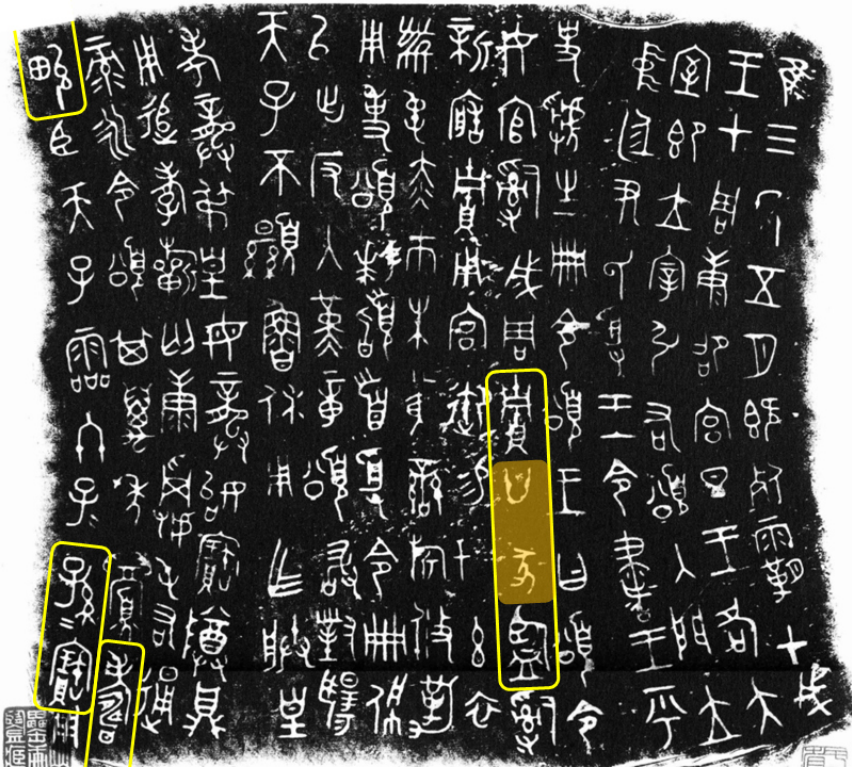 隹三年五月既死霸甲戌
王才周康卲宮旦王各大
室即立宰引右頌入門立
中廷尹氏受王令書王乎
史虢生冊令頌王曰頌令
女官𤔲成周貯廿家監𤔲
新寤貯用宮御易女玄衣
黹屯赤巿朱黃䜌旂攸勒
用事頌拜𩒨首受令冊佩
以出反入堇章頌敢對揚
天子不顯魯休用乍朕皇
考龔弔皇母龔始寶尊鼎
用追孝匄康屯右通
彔永令頌其萬年眉壽
畯臣天子霝冬子孫寶用